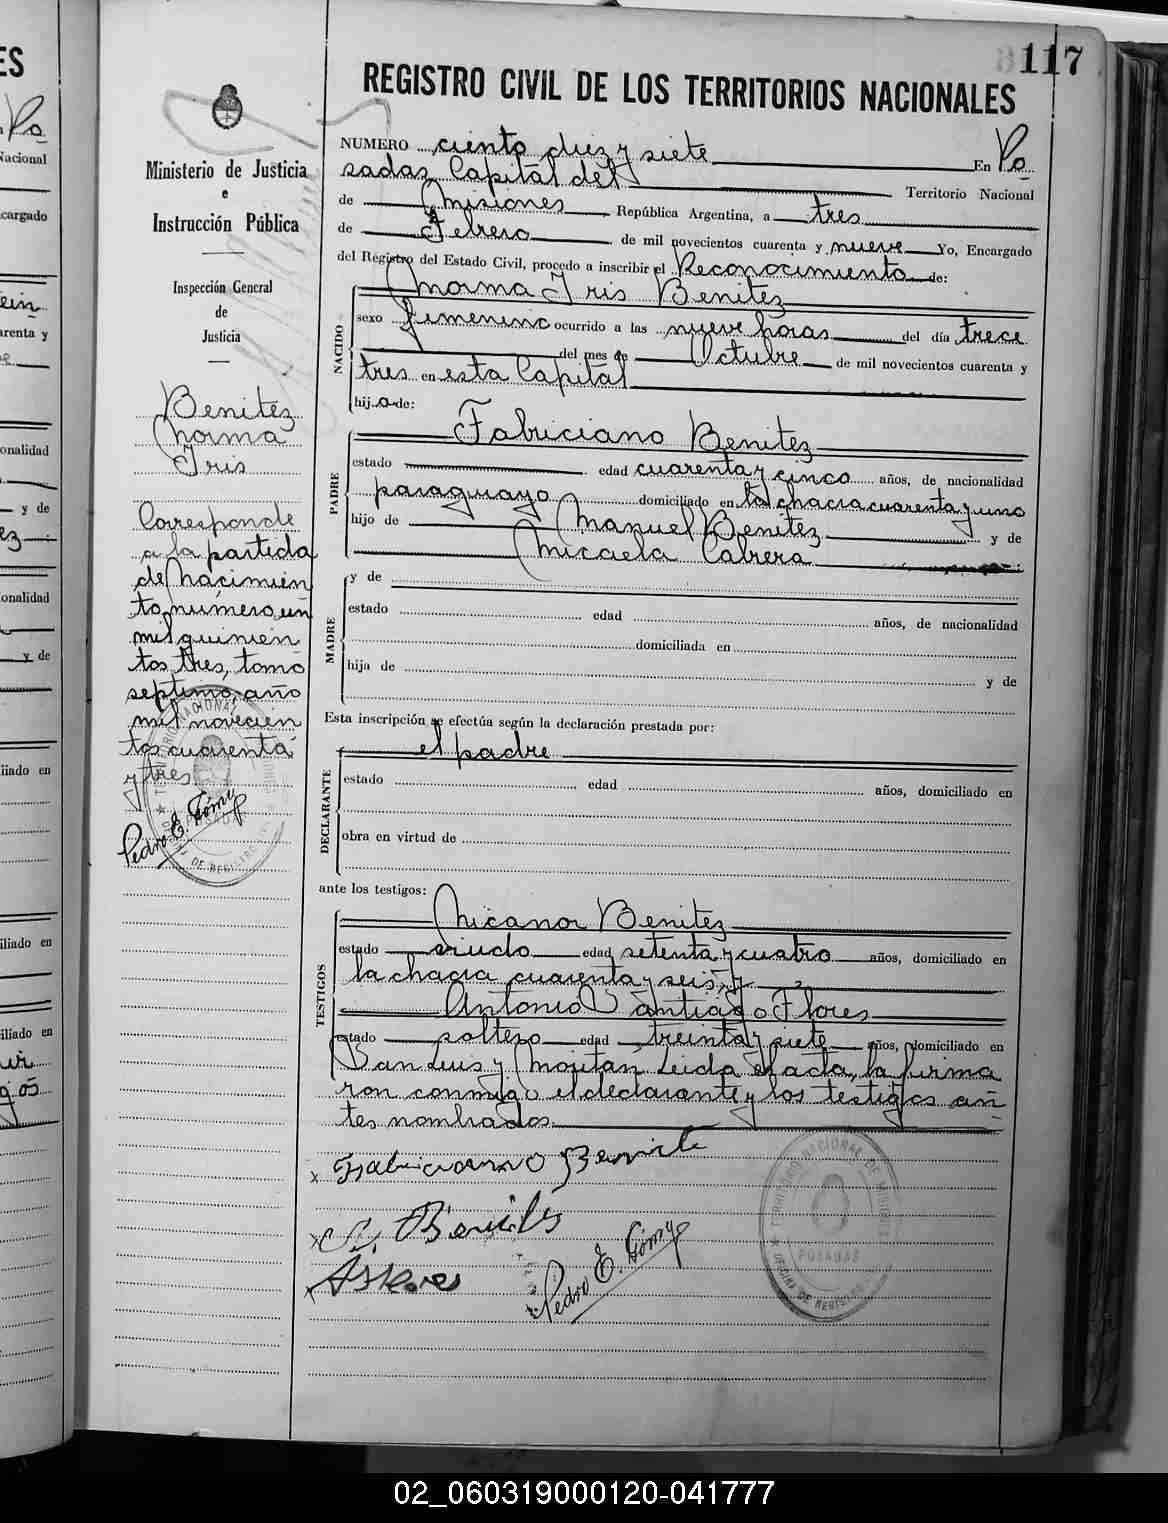 117
REGISTRO CIVIL DE LOS TERRITORIOS NACIONALES
Ministerio de Justicia
e
Instrucción Pública
Inspección General
de
Justicia
Benitez
Norma
Iris
Corresponde
a la partida
de Nacimien
to número un
mil quinien
tos tres, tomo
septimo, año
mil novecien
tos cuarenta
y tres
Pedro E. Gómez
NUMERO ciento diez y siete En Po
sadas, Capital del Territorio Nacional
de Misiones República Argentina, a tres
de Febrero de mil novecientos cuarenta y nueve Yo, Encargado
del Registro del Estado Civil, procedo a inscribir el Reconocimiento de:
NACIDO
Norma Iris Benitez
sexo femenino ocurrido a las nueve horas del día trece
del mes de Octubre de mil novecientos cuarenta y
tres en esta Capital
hija de:
PADRE
Fabriciano Benitez
estado edad cuarenta y cinco años, de nacionalidad
paraguayo domiciliado en la chacra cuarenta y uno
hijo de Manuel Benitez y de
Micaela Cabrera
MADRE
y de
estado edad años, de nacionalidad
domiciliada en
hija de y de
Esta inscripción se efectúa según la declaración prestada por:
el padre
DECLARANTE
estado edad años, domiciliado en
obra en virtud de
ante los testigos:
TESTIGOS
Nicanor Benitez
estado viudo edad setenta y cuatro años, domiciliado en
la chacra cuarenta y seis, y
Antonio Santiago Flores
estado soltero edad treinta y siete años, domiciliado en
San Luis y Moritán. Leida el acta, la firma
ron conmigo el declarante y los testigos an
tes nombrados.
x Fabriciano Benite
x N. Benites
x
Pedro E. Gómez
TERRITORIO NACIONAL DE MISIONES
POSADAS
OFICINA DE REGISTRO
02_060319000120-041777